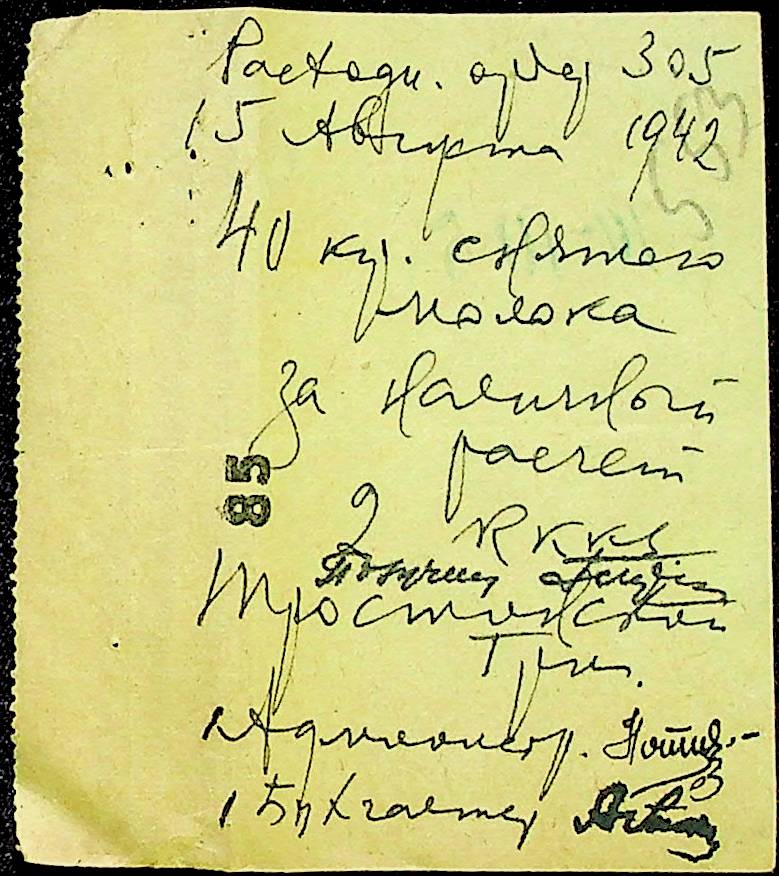 Расходн. ордер 305
15 Августа 1942
40 кг. снятого
молока
за наличный
расчет
85
Получил
Тростянской
Администр.
Бухгалтер